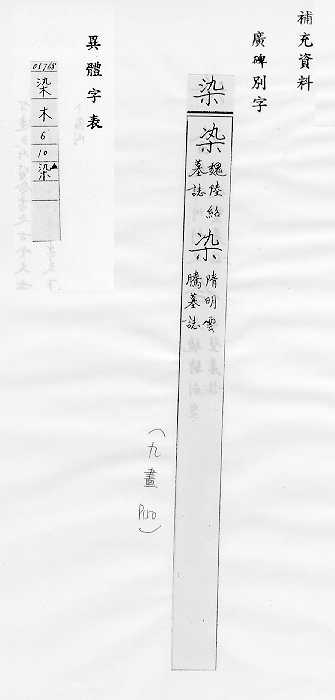 補充資料
廣碑別字
染
染
魏陸紹
墓誌
染
隋明雲
騰墓誌
（九畫 P150）
異體字表
01765
染
木
6
10
染